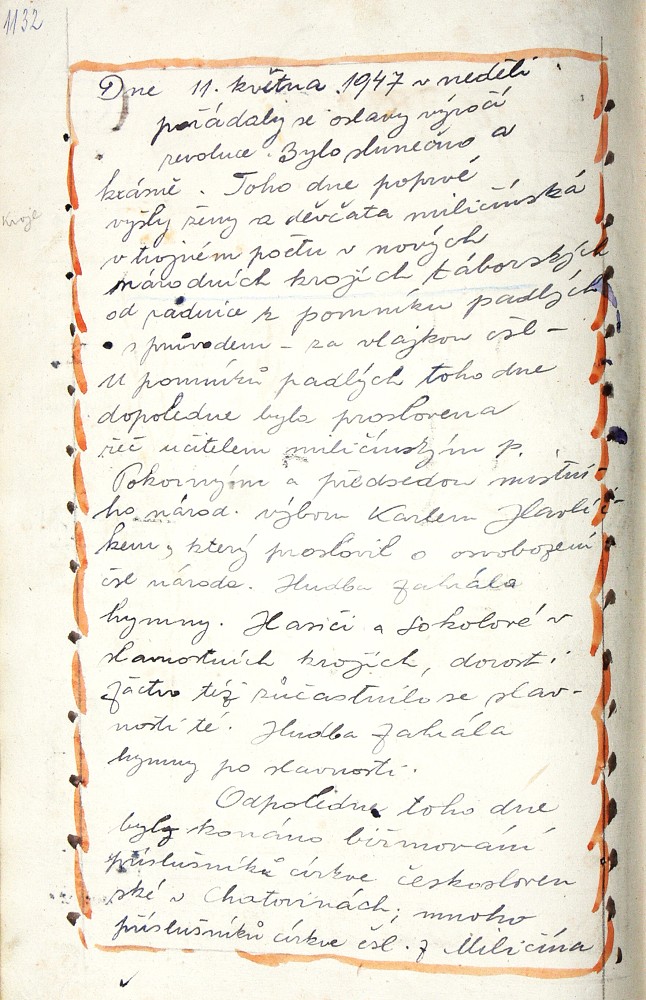 1132
Dne 11. května 1947 v neděli
pořádaly se oslavy výročí
revoluce. Bylo slunečno a
krásně. Toho dne poprvé
Kroje
vyšly ženy a děvčata miličínská
v hojném počtu v nových
národních krojích táborských
od radnice k pomníku padlých
s průvodem - za vlajkou čsl -
U pomníků padlých toho dne
dopoledne byla proslovena
řeč učitelem miličínským p.
Pokorným a předsedou místní-
ho národ. výboru Karlem Havlíč-
kem, který proslovil o osvobození
čsl národa. Hudba zahrála
hymny. Hasiči a Sokolové v
slavnostních krojích, dorost i
žáctvo též zůčastnilo se slav-
nosti té. Hudba zahrála
hymny po slavnosti.
Odpoledne toho dne
bylo konáno biřmování
příslušníků církve českosloven
ské v Chotovinách; mnoho
příslušníků církve čsl. z Miličína